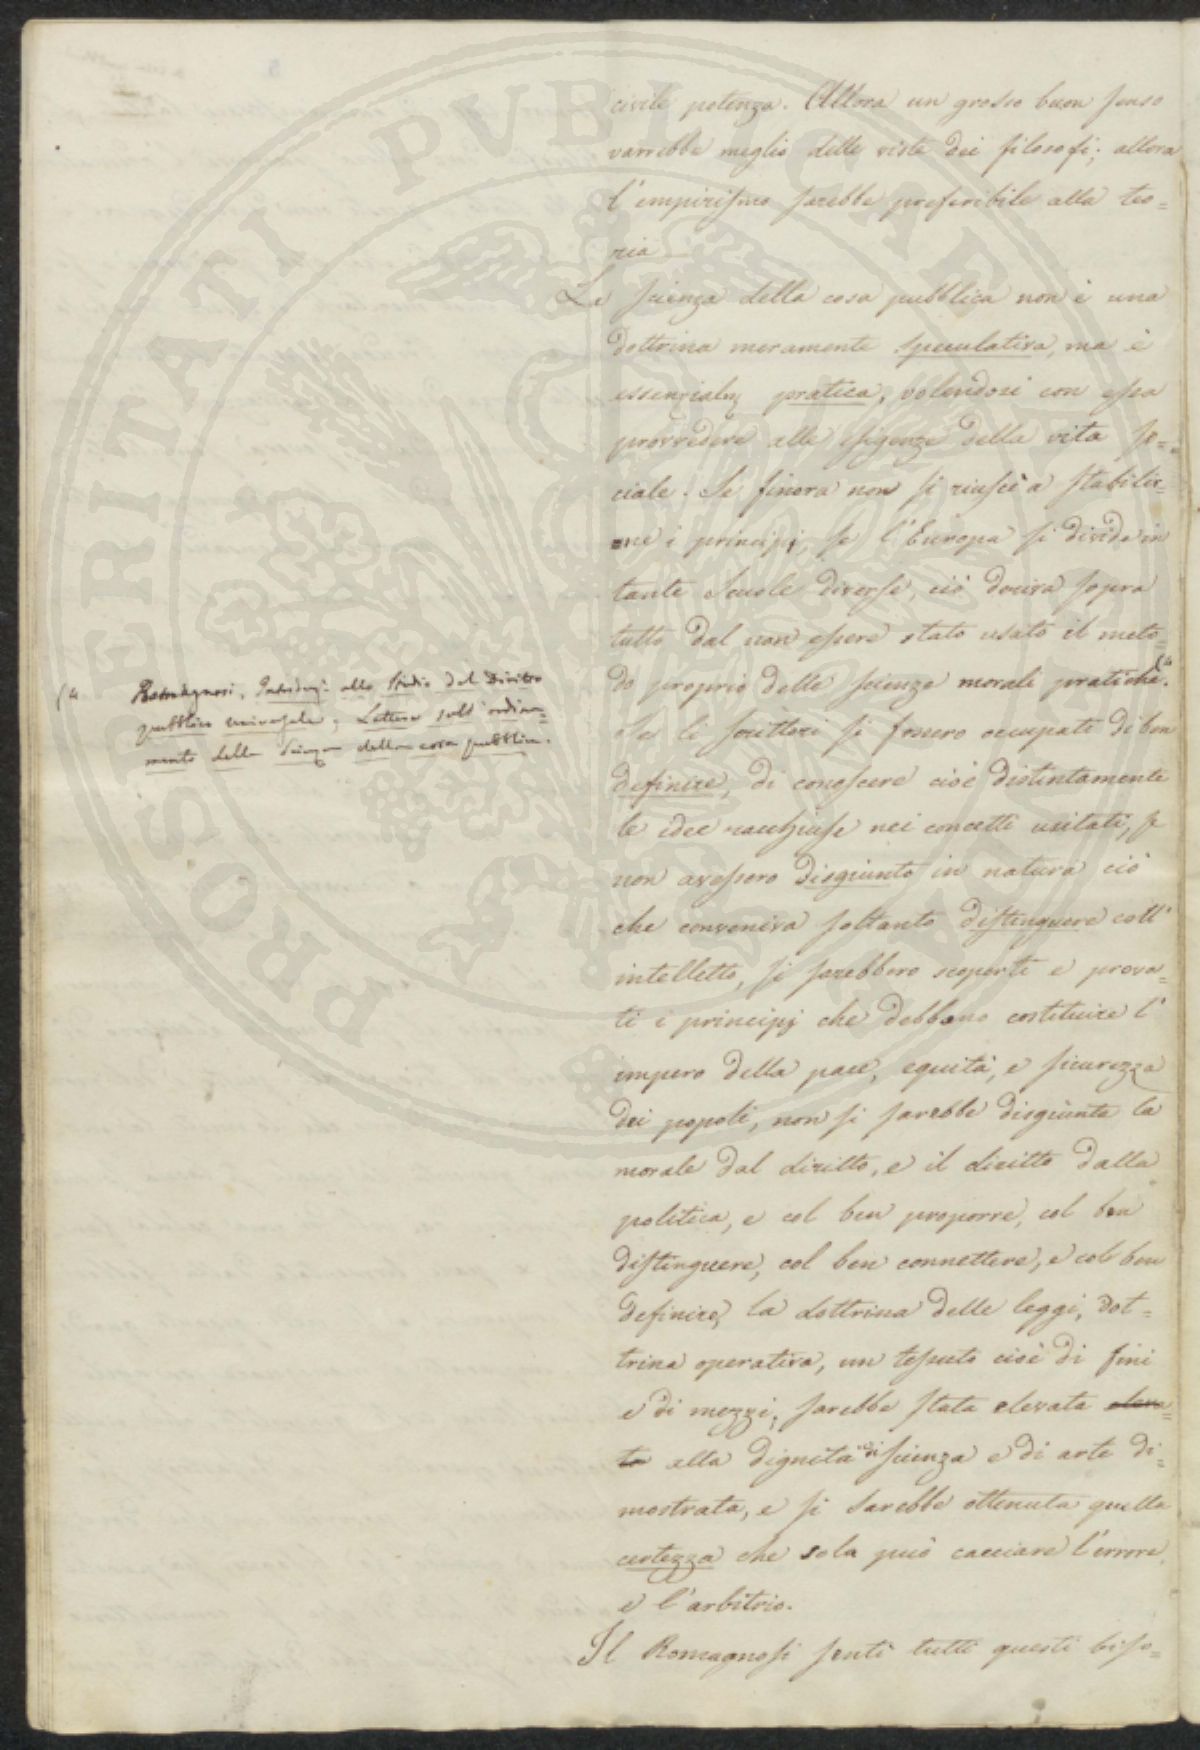 civile potenza. Allora un grosso buon senso
varrebbe meglio delle viste dei filosofi; allora
l'empirismo sarebbe preferibile alla teo=
ria
La scienza della cosa pubblica non è una
dottrina meramente speculativa, ma è
essenzialm pratica, volendosi con essa
provvedere alle esigenze della vita so=
ciale. Se finora non si riuscì a stabilir=
ne i principj, se l'Europa si divide in
tante Scuole diverse, ciò deriva sopra
tutto dal non essere stato usato il meto=
do proprio delle scienze morali pratiche. (a
(a Romagnosi, Introduz. allo Studio del Diritto
pubblico universale; Lettere sull'ordina=
mento della Scienza della cosa pubblica.
Se li scrittori si fossero occupati di ben
definire, di conoscere cioè distintamente
le idee racchiuse nei concetti usitati, se
non avessero disgiunto in natura ciò
che conveniva soltanto distinguere coll'
intelletto, si sarebbero scoperti e prova=
ti i principj che debbano costituire l'
impero della pace, equità, e sicurezza
dei popoli, non si sarebbe disgiunta la
morale dal diritto, e il diritto dalla
politica, e col ben proporre, col ben
distinguere, col ben connettere, e col ben
definire, la dottrina delle leggi, dot=
trina operativa, un tessuto cioè di fini
e di mezzi, sarebbe stata elevata eleva=
ta alla dignità di scienza e di arte di=
mostrata, e si sarebbe ottenuta quella
certezza che sola può cacciare l'errore
e l'arbitrio.
Il Romagnosi sentì tutti questi biso=
PROSPERITATI PUBLICAE